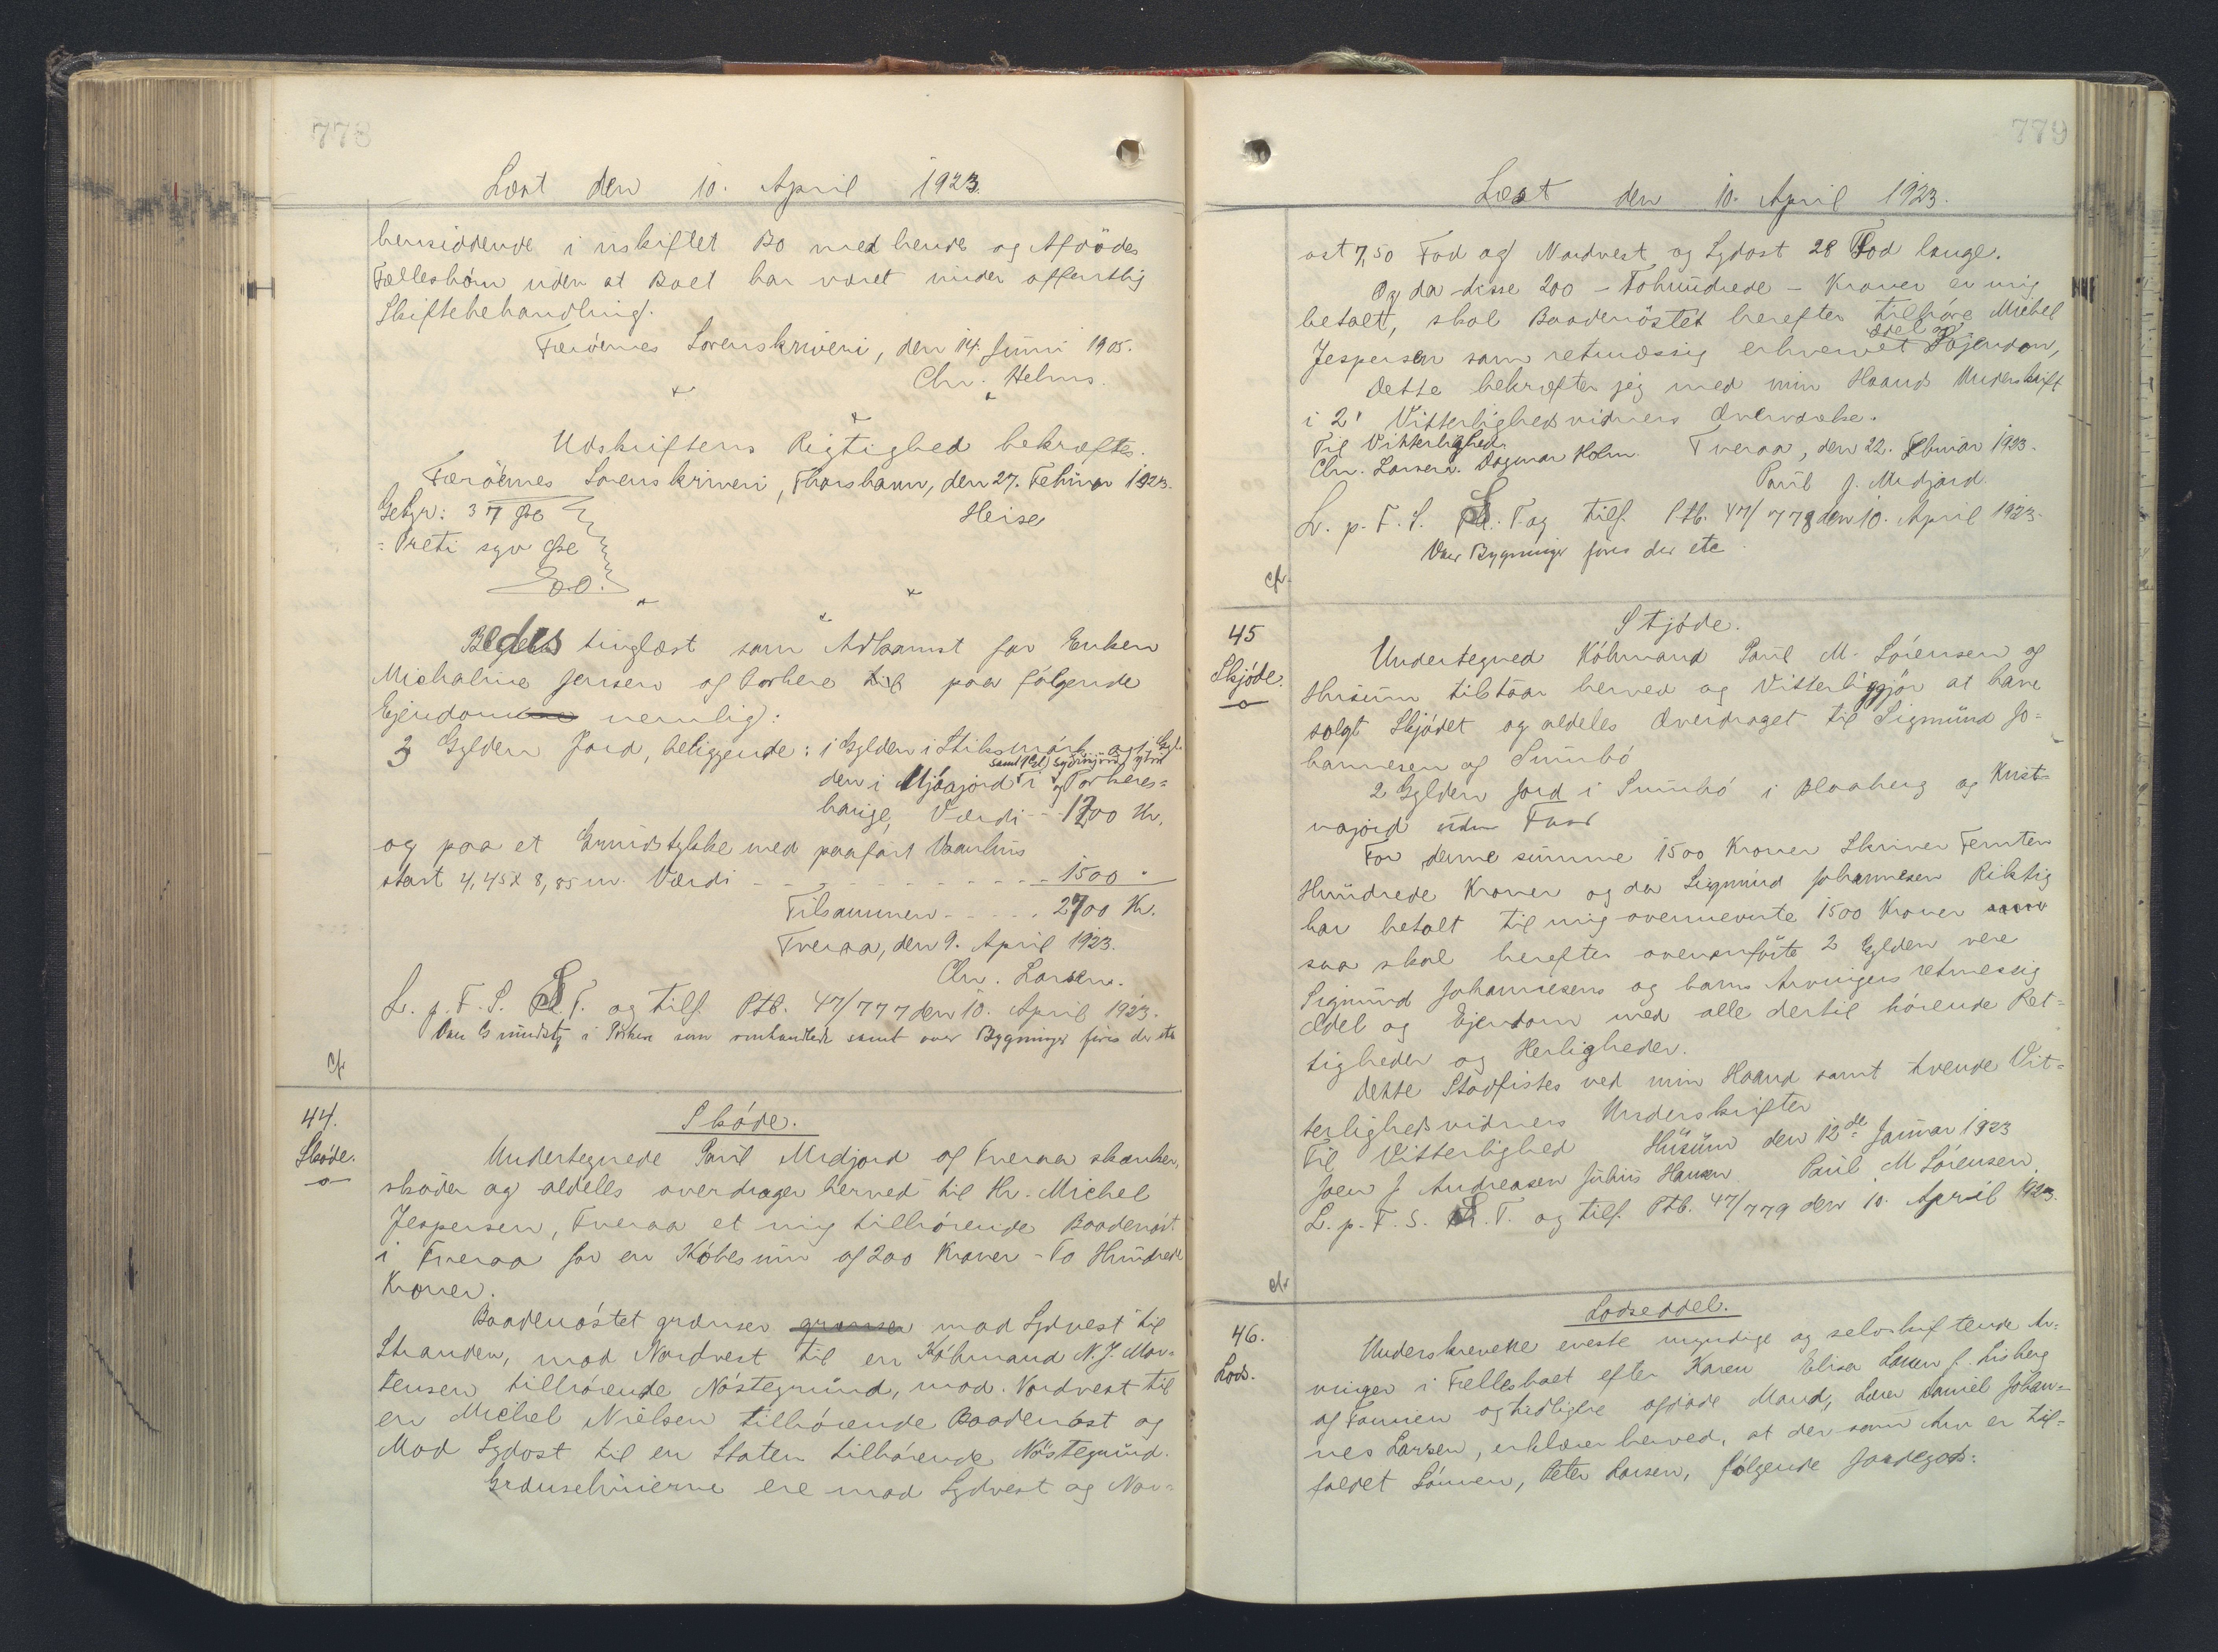 778
Læst den 10. April 1923.
hensiddende i uskiftet Bo med hende og Afdödes
Fællesbörn uden at Boet har været under offentlig
Skiftebehandling.
Færöernes Sorenskriveri, den 14. Juni 1905.
Chr. Helms.
Udskriftens Rigtighed bekræftes.
Færöernes Sorenskriveri, Thorshavn, den 27. Februar 1923.
Gebyr: 37 Øre Heise
= Treti syv Øre
Bedes tinglæst som Adkomst for Enken
Michaline Jensen af Porkere paa fölgende
Ejendom nemlig:
3 Gylden Jord, beliggende: 1 Gylden i Stiksmørk og 1 Gyl-
den i Mjóajord i Porkeres-
hauge, Værdi - - 1200 Kr.
og paa et Grundstykke med paafört Vaanhus
stort 4,45 x 8,85 m. Værdi - - - - 1500 "
Tilsammen - - - - 2700 Kr.
Tveraa, den 9. April 1923.
Chr. Larsen.
L. p. F. S. S. T. og tilf. Ptb. 47/777 den 10. April 1923.
Den Grundstk i Porkere som omhandlede samt over Bygninger fires der ete
cfr
44.
Sköde.
Sköde.
Undertegnede Paul Midjord af Tveraa skænker,
sköder og aldeles overdrager herved til Hr. Michel
Jespersen, Tveraa et mig tilhörende Baadenöst
i Tveraa for en Köbesum af 200 Kroner - To Hundrede
Kroner.
Baadenöstet grænser grænser mod Sydvest til
Stranden, mod Nordvest til en Köbmand N. J. Mor-
tensen tilhörende Nöstegrund, mod. Nordvest til
en Michel Nielsen tilhörende Baadenöst og
Mod Sydost til en Staten tilhörende Nöstegrund.
Grænselinierne ere mod Sydvest og Nor-
779
Læst den 10. April 1923.
ost 7,50 Fod og Nordvest og Sydost 28 Fod lange.
Og da disse 200 - Tohundrede - Kroner er mig
betalt, skal Baadenöstet herefter tilhöre Michel
Jespersen som retmæssig erhvervet Odel og Ejendom,
Dette bekræfter jeg med min Haands Underskrift
i 2' Vitterlighedsvidners Overværelse.
Til Vitterlighed. Tveraa, den 22. Febuar 1923.
Chr. Larsen. Dagmar Holm. Paul J. Midjord.
L. p. F. S. S. T. og tilf. Ptb. 47/778 den 10. April 1923.
Over Bygninger fires der ete
cfr.
45
Skjöde.
Skjöde.
Undertegned Köbmand Paul M. Sörensen af
Husum tilstaar herved og Vitterliggjör at have
solgt Skjödet og aldeles Overdraget til Sigmund Jo-
hannesen af Sumbö
2 Gylden Jord i Sumbö i Blaaberg og Krist-
najord uden
For denne summe 1500 Kroner Skriver Femten
Hundrede Kroner og da Sigmund Johannesen Riktig
har betalt til mig ovennevnte 1500 Kroner
saa skal herefter ovenanförte 2 Gylden vere
Sigmund Johannesens og hans Arvingers retmessig
Odel og Ejendom med alle dertil hörende Ret-
tigheder og Herligheder.
Dette Stadfistes ved min Haand samt tvende Vit-
terlighedsvidners Underskrifter
Til Vitterlighed Husum den 12de Januar 1923
Joen J Andreasen Julius Hansen Paul M Sörensen.
L. p. F. S. S. T. og tilf. Ptb. 47/779 den 10. April 1923.
cfr
46.
Lods.
Lodseddel.
Underskrevne eneste myndige og selvskiftende Ar-
vinger i Fællesboet efter Karen Elisa Larsen f. Lisberg
af Famien og tidligere afdöde Mand, Lærer Daniel Johan-
nes Larsen, erklærer herved, at der som Arv er til-
faldet Sönnen, Peter Larsen, fölgende Jordegods: